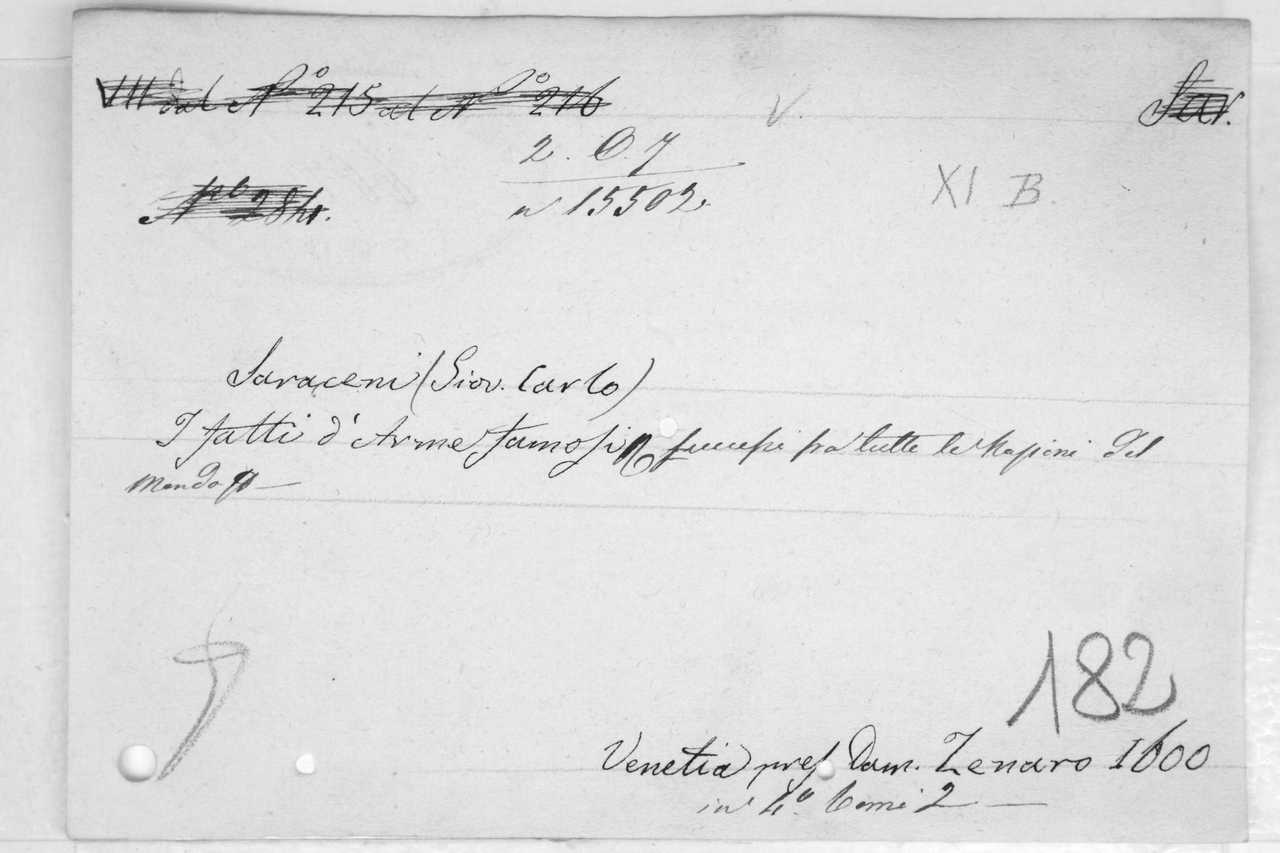 VII dal N.º 215 al N.º 216
V.
Sar.
2. O. 7
n 15502.
XI B.
Saraceni (Giov. Carlo)
I fatti d'Arme famosi successi fra tutte le Nasioni del
mondo
182
Venetia press. Dam. Zenaro 1600
in 4.º tomi 2